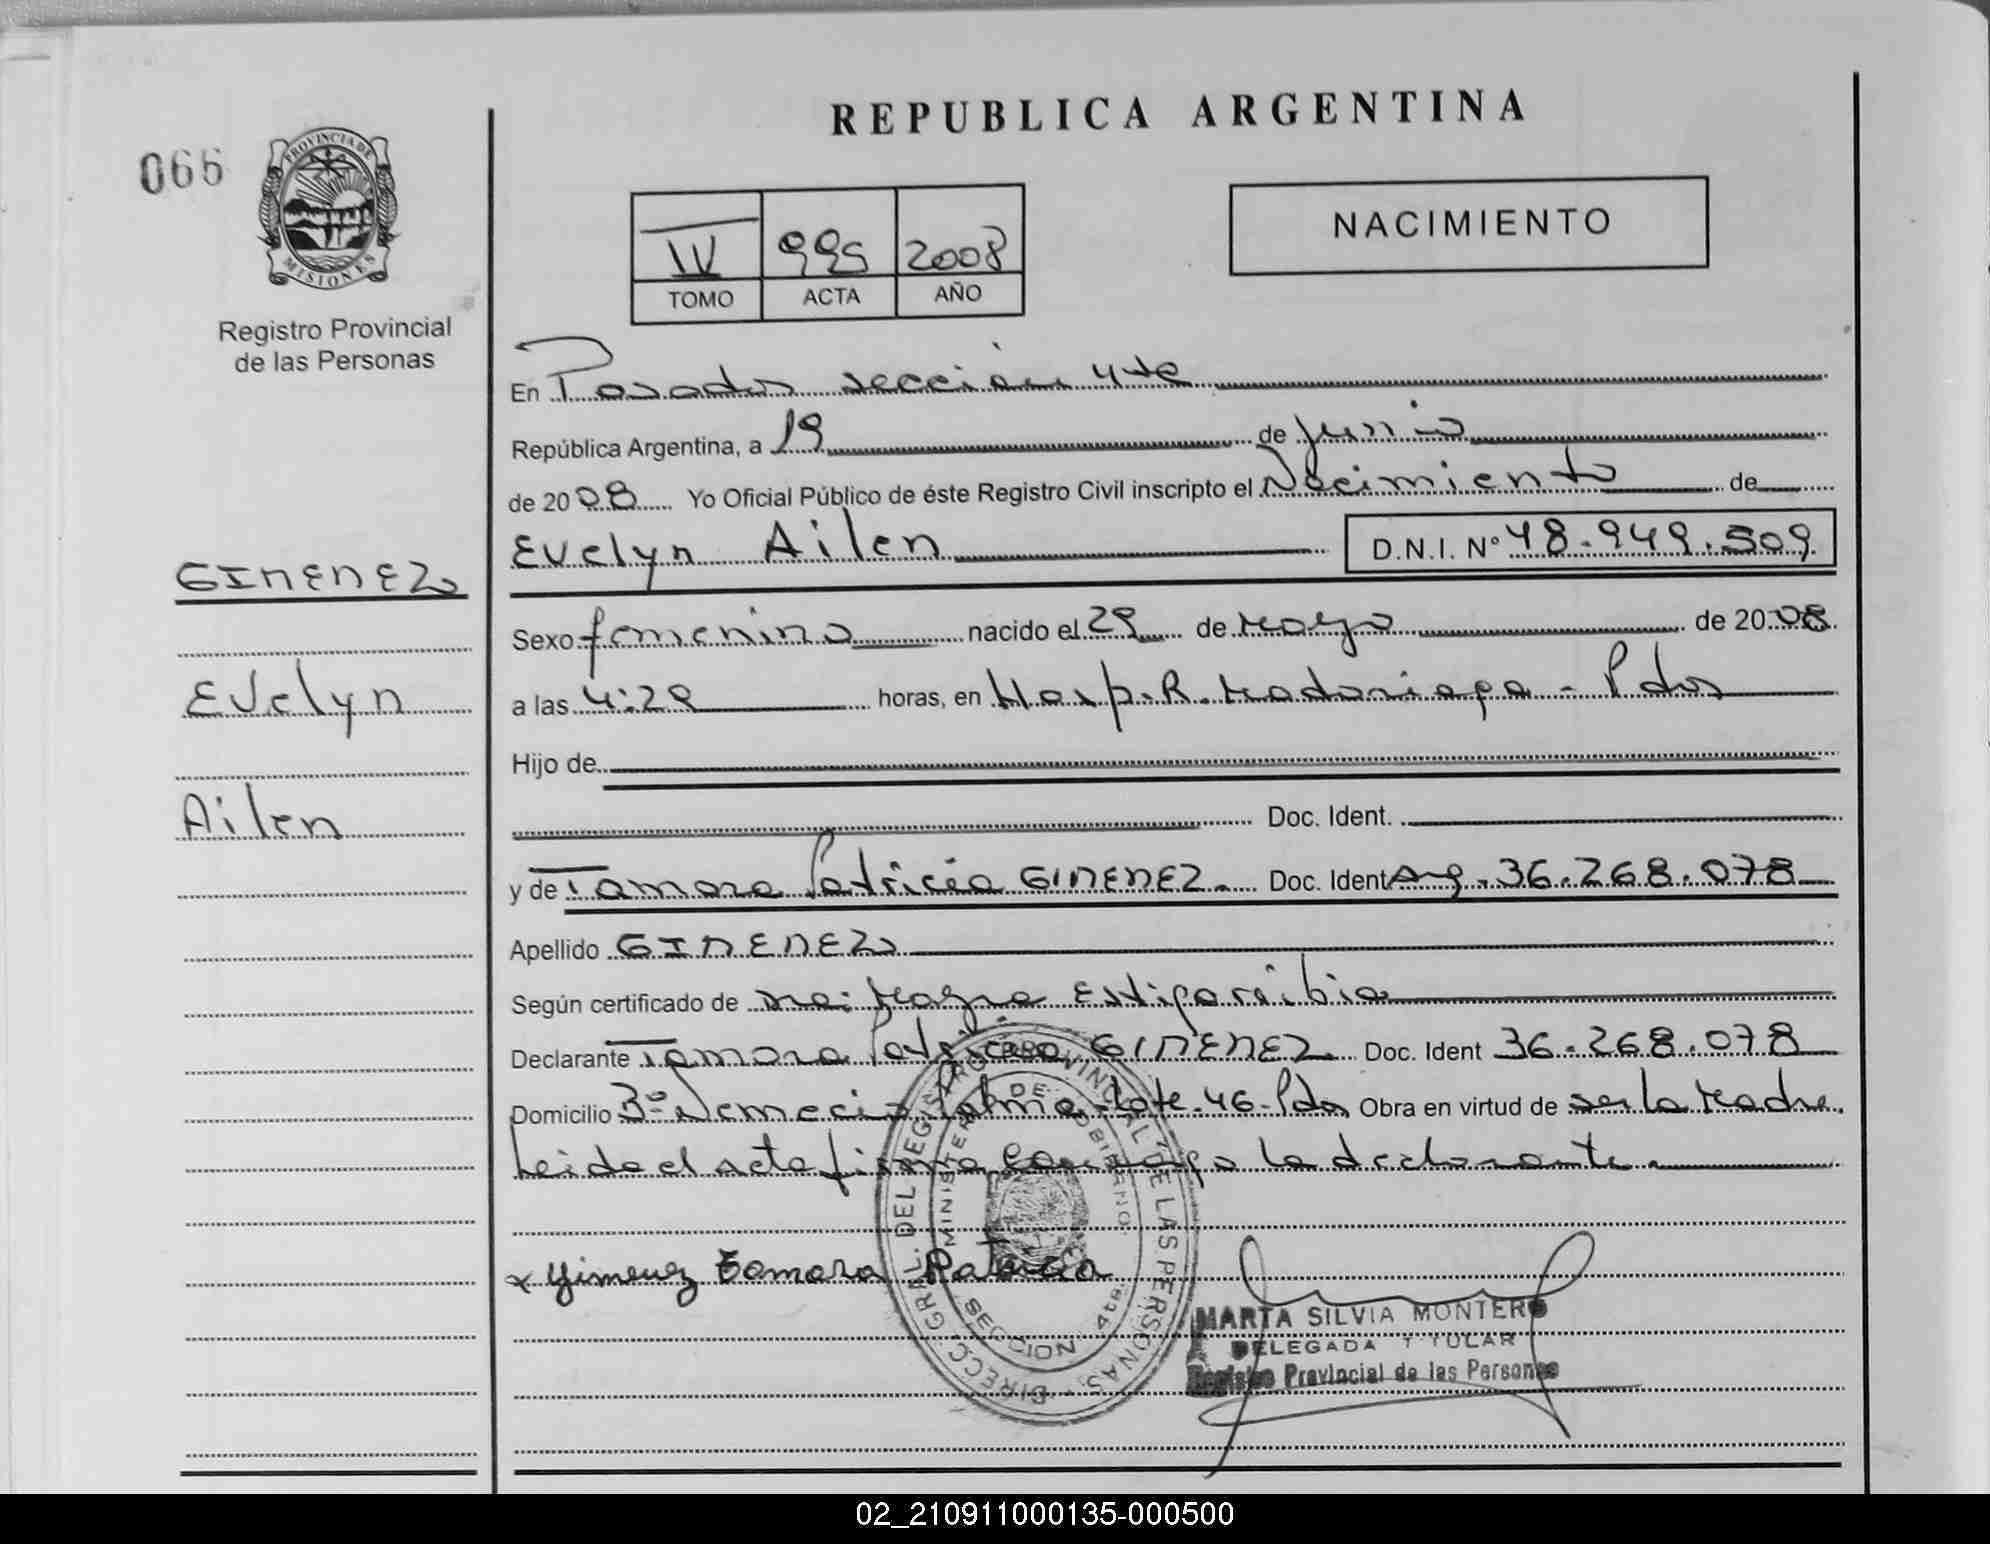 REPUBLICA ARGENTINA
066
PROVINCIA DE MISIONES
Registro Provincial
de las Personas
NACIMIENTO
IV 995 2008
TOMO ACTA AÑO
En Posadas sección 4ta
República Argentina, a 19 de junio
de 2008 Yo Oficial Público de éste Registro Civil inscripto el Nacimiento de
Evelyn Ailen D.N.I. N° 48.949.509
GIMENEZ
Evelyn
Ailen
Sexo femenino nacido el 29 de Mayo de 2008
a las 4:29 horas, en Hosp. R. Madariaga - Pdas
Hijo de
Doc. Ident.
y de Tamara Patricia GIMENEZ. Doc. Ident Arg. 36.268.078
Apellido GIMENEZ
Según certificado de
Declarante Tamara Patricia GIMENEZ. Doc. Ident 36.268.078
Domicilio Lote 46 - Pdas Obra en virtud de ser la Madre.
Leida el acta firma conmigo la declarante
x Gimenez Tamara Patricia
DIRECC. GRAL. DEL REGISTRO PROVINCIAL DE LAS PERSONAS
MINISTERIO DE GOBIERNO
SECCION 4ta
MARTA SILVIA MONTERO
DELEGADA TITULAR
Registro Provincial de las Personas
02_210911000135-000500